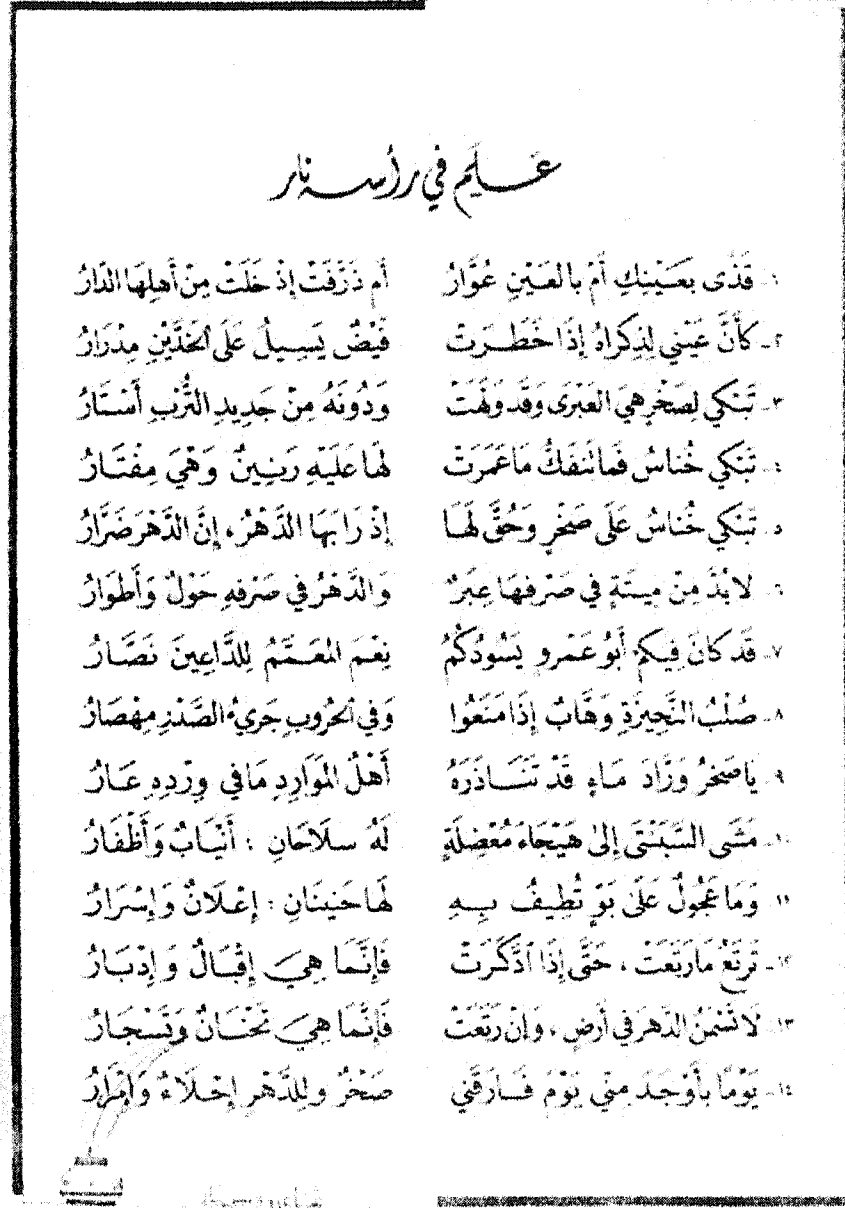 عَلَمٌ في رأسه نار
١ـ قَذًى بعَيْنِكِ أمْ بالعَيْنِ عُوَّارُ أم ذَرَفَتْ إذْ خَلَتْ مِنْ أَهلِهَا الدَّارُ
٢ـ كأَنَّ عَيْني لِذِكراهُ إذَا خَطَرَتْ فَيْضٌ يَسِيلُ عَلَى الخَدَّيْنِ مِدْرَارُ
٣ـ تَبْكي لِصَخْرٍ هيَ العَبْرَى وَقَد وَلَهَتْ وَدُونَهُ مِنْ جَدِيدِ التُّرْبِ أَسْتَارُ
٤ـ تَبْكي خُناسُ فَما تَنْفَكُّ مَا عَمَرَتْ لَهَا عَلَيْهِ رَنِينٌ وَهْيَ مِفْتَارُ
٥ـ تَبْكي خُناسُ عَلَى صَخْرٍ وَحُقَّ لَهَا إذْ رَابَهَا الدَّهْرُ، إنَّ الدَّهْرَ ضَرَّارُ
٦ـ لابُدَّ مِنْ مِيتَةٍ في صَرْفِهَا عِبَرٌ وَالدَّهْرُ في صَرْفِهِ حَوْلٌ وَأَطوَارُ
٧ـ قَد كانَ فِيكُمْ أَبُو عَمْرٍو يَسُودُكُمُ نِعْمَ المُعَمَّمُ لِلدَّاعِينَ نَصَّارُ
٨ـ صُلْبُ النَّحِيزَةِ وَهَّابٌ إذَا مَنَعُوا وَفي الحُروبِ جَرِيءُ الصَّدْرِ مِهْصَارُ
٩ـ يَا صَخْرُ وَرَّادَ مَاءٍ قَدْ تَنَاذَرَهُ أَهْلُ المَوَارِدِ مَا في وِرْدِهِ عَارُ
١٠ـ مَشَى السَّبَنْتَى إلى هَيْجَاءَ مُعْضِلَةٍ لَهُ سلاَحَانِ : أَنْيَابٌ وَأَظْفَارُ
١١ـ وَمَا عَجُولٌ عَلَى بَوٍّ تُطِيفُ بِهِ لَهَا حَنِينَانِ : إعْلاَنٌ وَإسْرَارُ
١٢ـ تَرتَعُ مَا رَتَعَتْ، حَتَّى إذَا ٱدَّكَرَتْ فَإنَّمَا هِيَ إقْبَالٌ وَإدْبَارُ
١٣ـ لاَ تَسْمَنُ الدَّهرَ في أَرضٍ، وَإنْ رَتَعَتْ فَإنَّمَا هِيَ تَحْنَانٌ وَتَسْجَارُ
١٤ـ يَوْمًا بأَوْجَدَ مِنّي يَوْمَ فَارَقَني صَخْرٌ ولِلدَّهْرِ إحْلاَءٌ وَإمْرَارُ